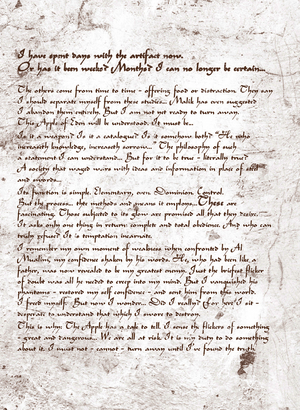 I have spent days with the artifact now.
Or has it been weeks? Months? I can no longer be certain...
The others come from time to time - offering food or distraction. They say
I should separate myself from these studies... Malik has even suggested
I abandon them entirely. But I am not yet ready to turn away.
This Apple of Eden will be understood. It must be...
Is it a weapon? Is it a catalogue? Is it somehow both? "He who
increaseth knowledge, increaseth sorrow..." The philosophy of such
a statement I can understand... But for it to be true - literally true?
A society that waged wars with ideas and information in place of steel
and swords...
Its function is simple. Elementary, even. Dominion. Control.
But the process... the methods and means it employs... These are
fascinating. Those subjected to its glow are promised all that they desire.
It asks only one thing in return: complete and total obedience. And who can
truly refuse? It is temptation incarnate.
I remember my own moment of weakness when confronted by Al
Mualim, my confidence shaken by his words. He, who had been like a
father, was now revealed to be my greatest enemy. Just the briefest flicker
of doubt was all he needed to creep into my mind. But I vanquished his
phantoms - restored my self confidence - and sent him from this world.
I freed myself. But now I wonder... Did I really? For here I sit -
desperate to understand that which I swore to destroy.
This is why: The Apple has a tale to tell. I sense the flickers of something
- great and dangerous... We are all at risk. It is my duty to do something
about it. I must not - cannot - turn away until I've found the truth